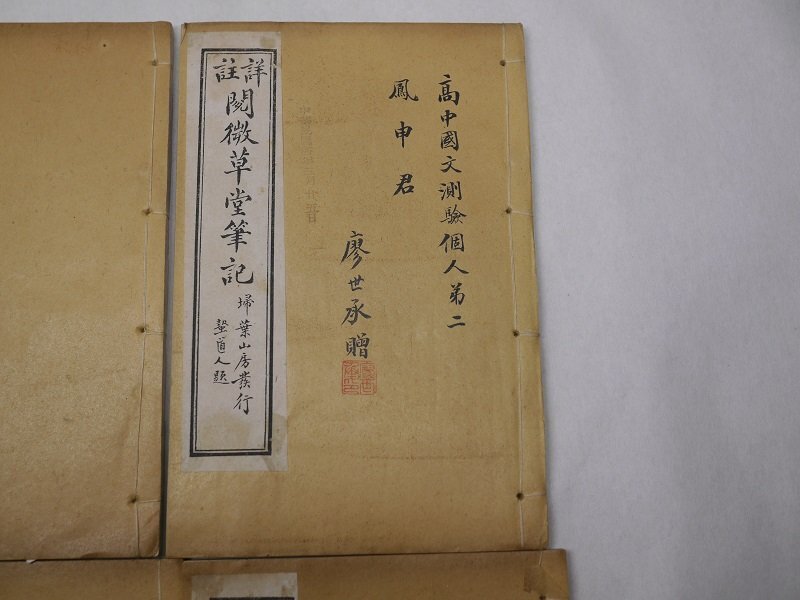 高中國文測驗個人第二
鳳申君
廖世承贈
詳註
閱微草堂筆記
埽葉山房發行
道人題